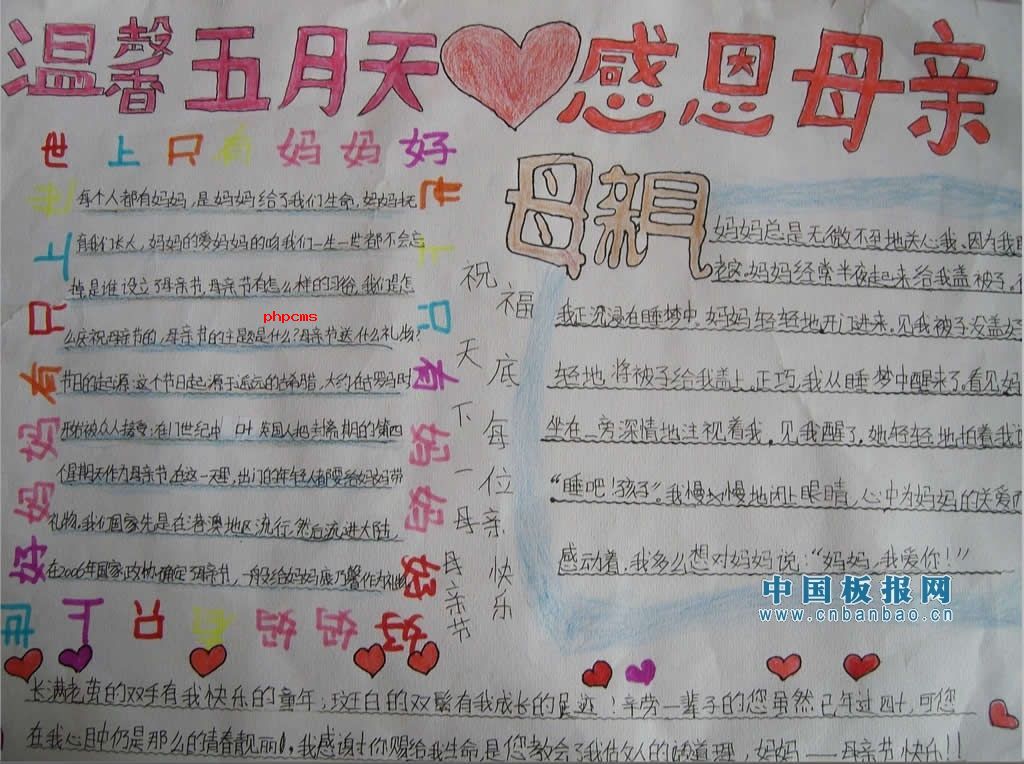 温馨五月天 感恩母亲
世上只有妈妈好
世上只有妈妈好
世上只有妈妈好
世上只有妈妈好
每个人都有妈妈,是妈妈给了我们生命,妈妈抚
育我们长大,妈妈的爱妈妈的吻我们一生一世都不会忘
掉是谁设立了母亲节,母亲节有怎么样的习俗,我们是怎
么庆祝母亲节的,母亲节的主题是什么?母亲节送什么礼物?
节日的起源:这个节日起源于遥远的古希腊,大约在古罗马时
形始被众人接受:在17世纪中叶英国人把封斋期的第四
个星期天作为母亲节,在这一天里,出门的年轻人都要给妈妈带
礼物,我们国家先是在港澳地区流行然后流进大陆
在2006年国家政协确定母亲节,一般给妈妈康乃馨作为礼物
phpcms
祝福天底下每一位母亲母亲节快乐
母亲
妈妈总是无微不至地关心我,因为我
妈妈经常半夜起来给我盖被子,
我正沉浸在睡梦中,妈妈轻轻地开门进来,见我被子没盖好
轻地将被子给我盖上,正巧,我从睡梦中醒来了,看见妈
坐在一旁深情地注视着我,见我醒了,她轻轻地拍着我
“睡吧!孩子”,我慢慢地闭上眼睛,心中为妈妈的关爱而
感动着,我多么想对妈妈说:“妈妈,我爱你!”
中国板报网
www.cnbanbao.cn
长满老茧的双手有我快乐的童年;斑白的双鬓有我成长的足迹!辛劳一辈子的您虽然已年过四十,可您
在我心目中仍是那么的青春靓丽,我感谢你赐给我生命是您教会了我做人的道理,妈妈——母亲节快乐!!